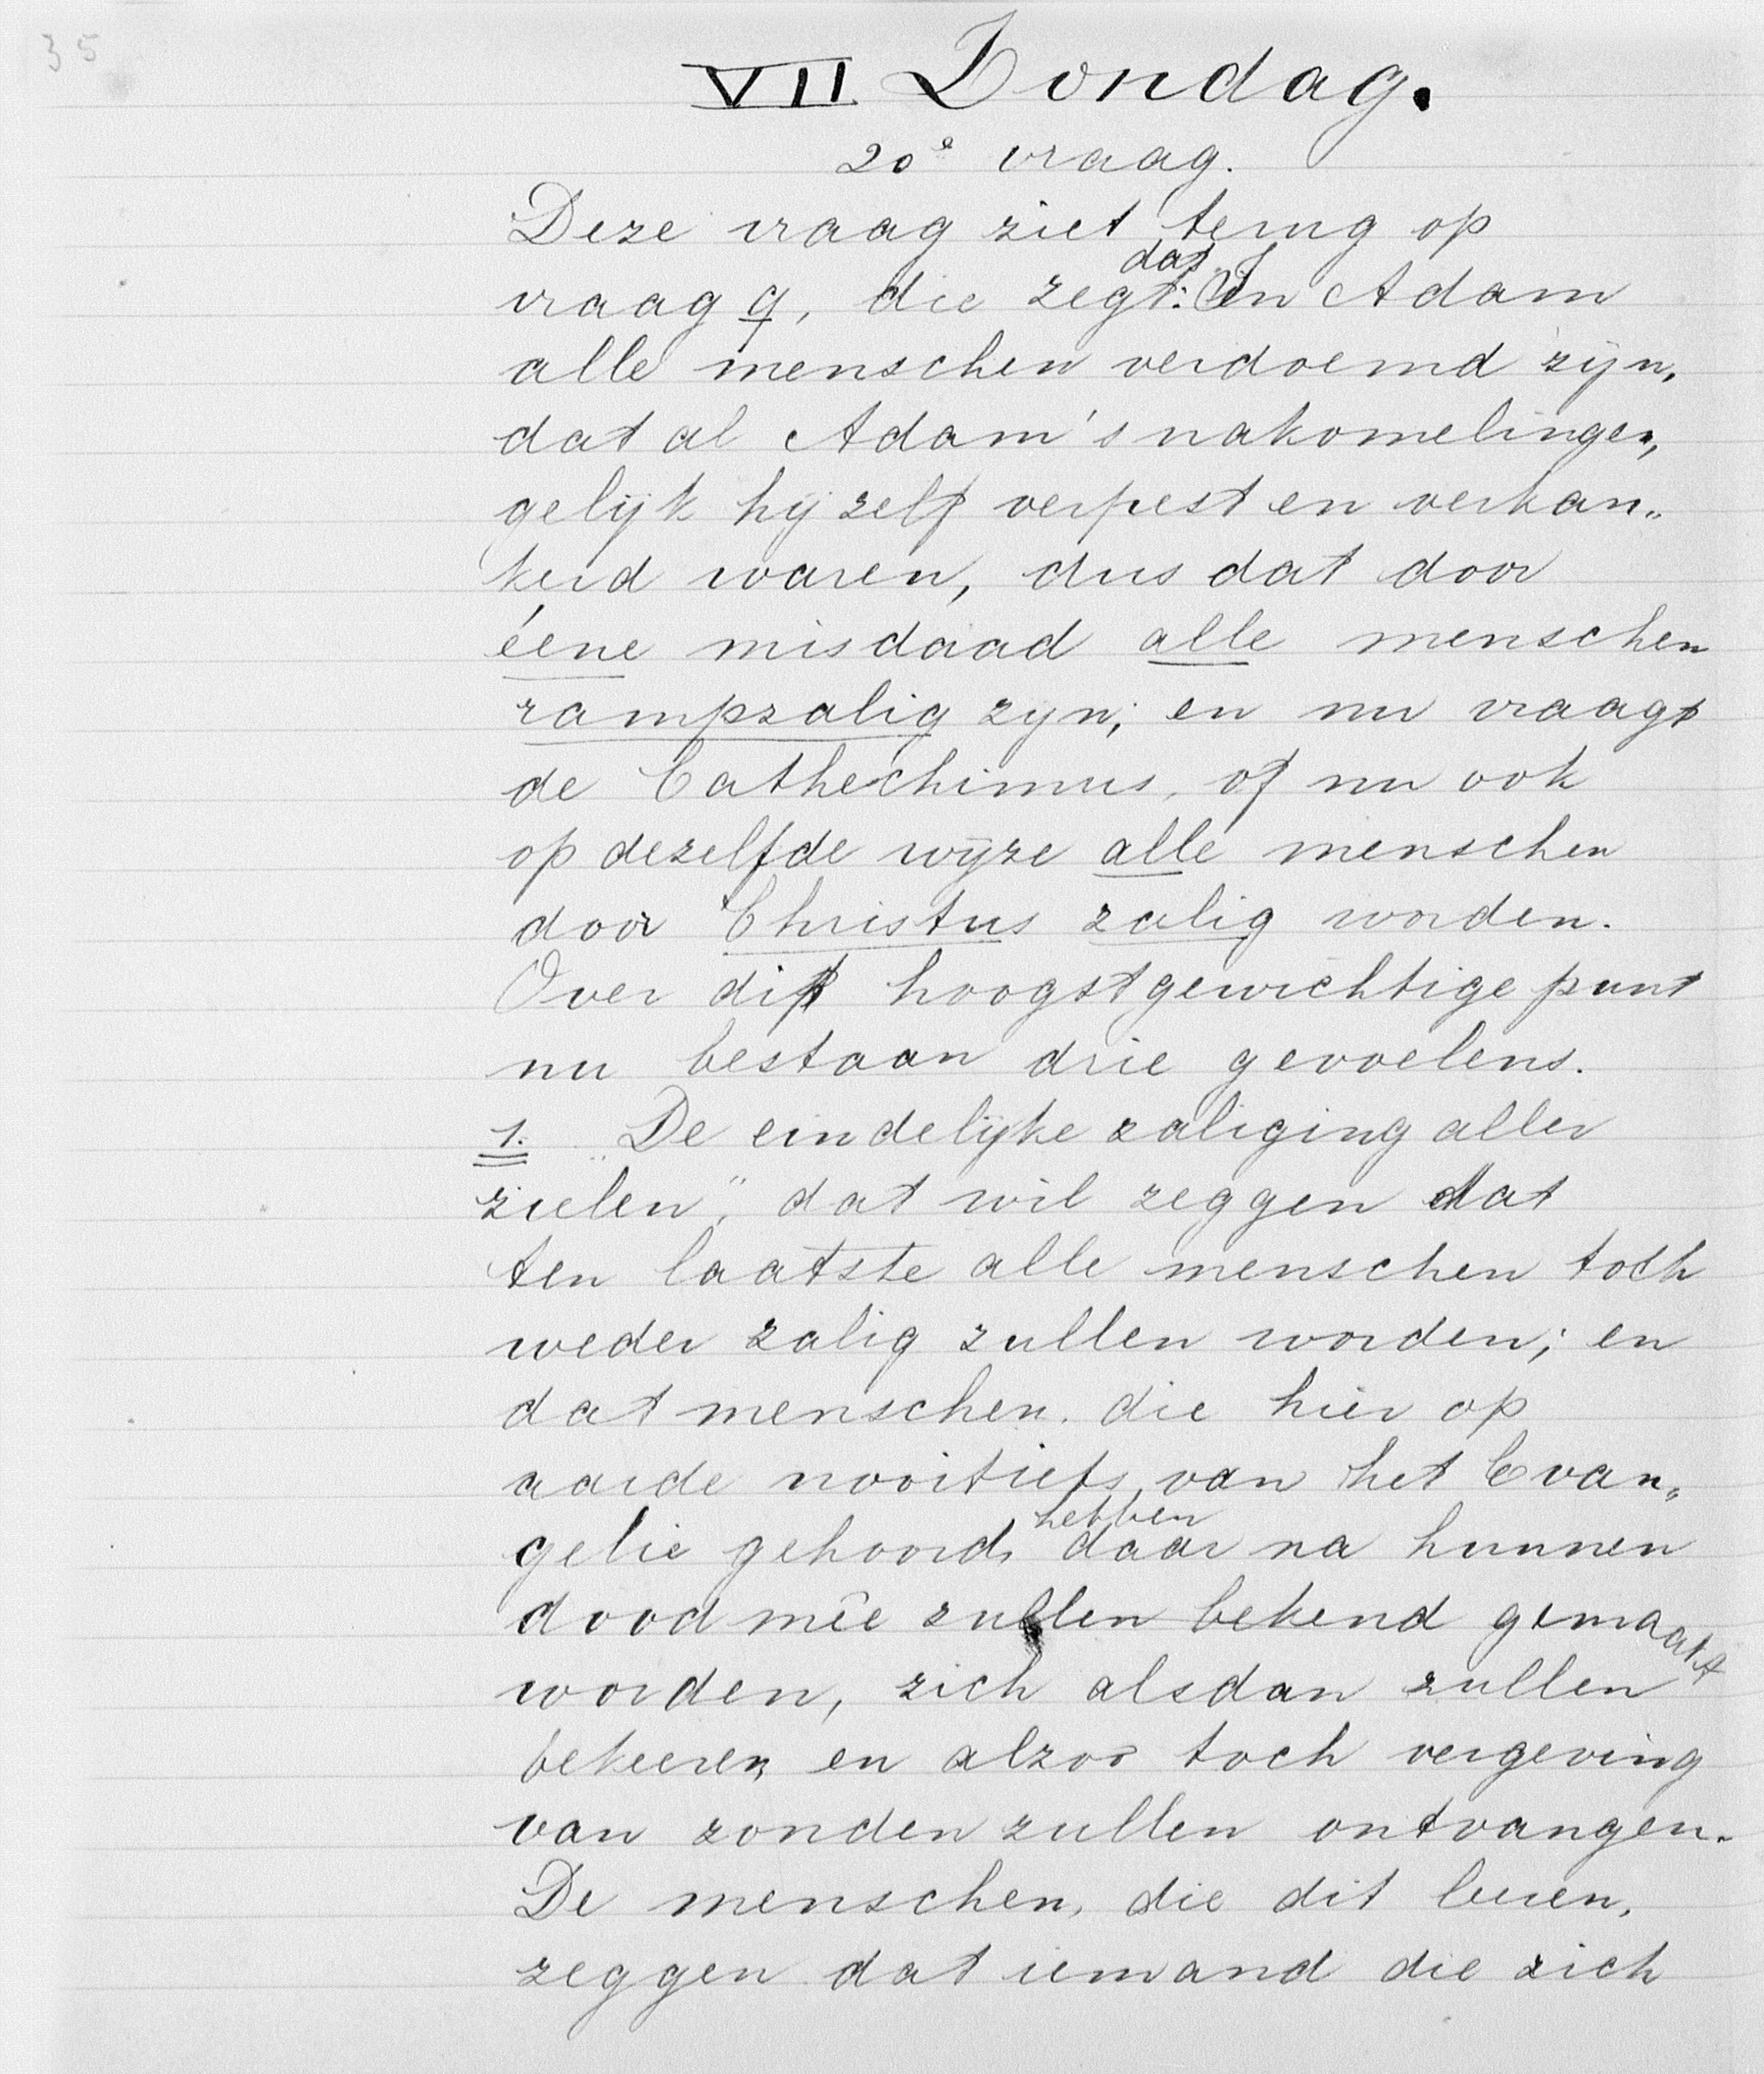 35
VII Zondag.
20e vraag.
Deze vraag ziet terug op
dat
vraag 9, die zegt: In Adam
alle menschen verdoemd zijn,
dat al Adam's nakomelingen,
gelijk hij zelf verpest en verkan„
kerd waren, dus dat door
ééne misdaad alle menschen
rampzalig zyn; en nu vraagt
de Cathechimus, of nu ook
op dezelfde wijze alle menschen
door Christus zalig worden.
Over dit hoogstgewichtige punt
nu bestaan drie gevoelens.
1. „De eindelijke zaliging aller
zielen", dat wil zeggen dat
ten laatste alle menschen toch
weder zalig zullen worden; en
dat menschen, die hier op
aarde nooit iets van het Evan„
hebben
gelie gehoord, daar na hunnen
dood mêe zullen bekend gemaakt
worden, zich alsdan zullen
bekeeren en alzoo toch vergeving
van zonden zullen ontvangen.
De menschen, die dit leeren,
zeggen dat iemand die zich